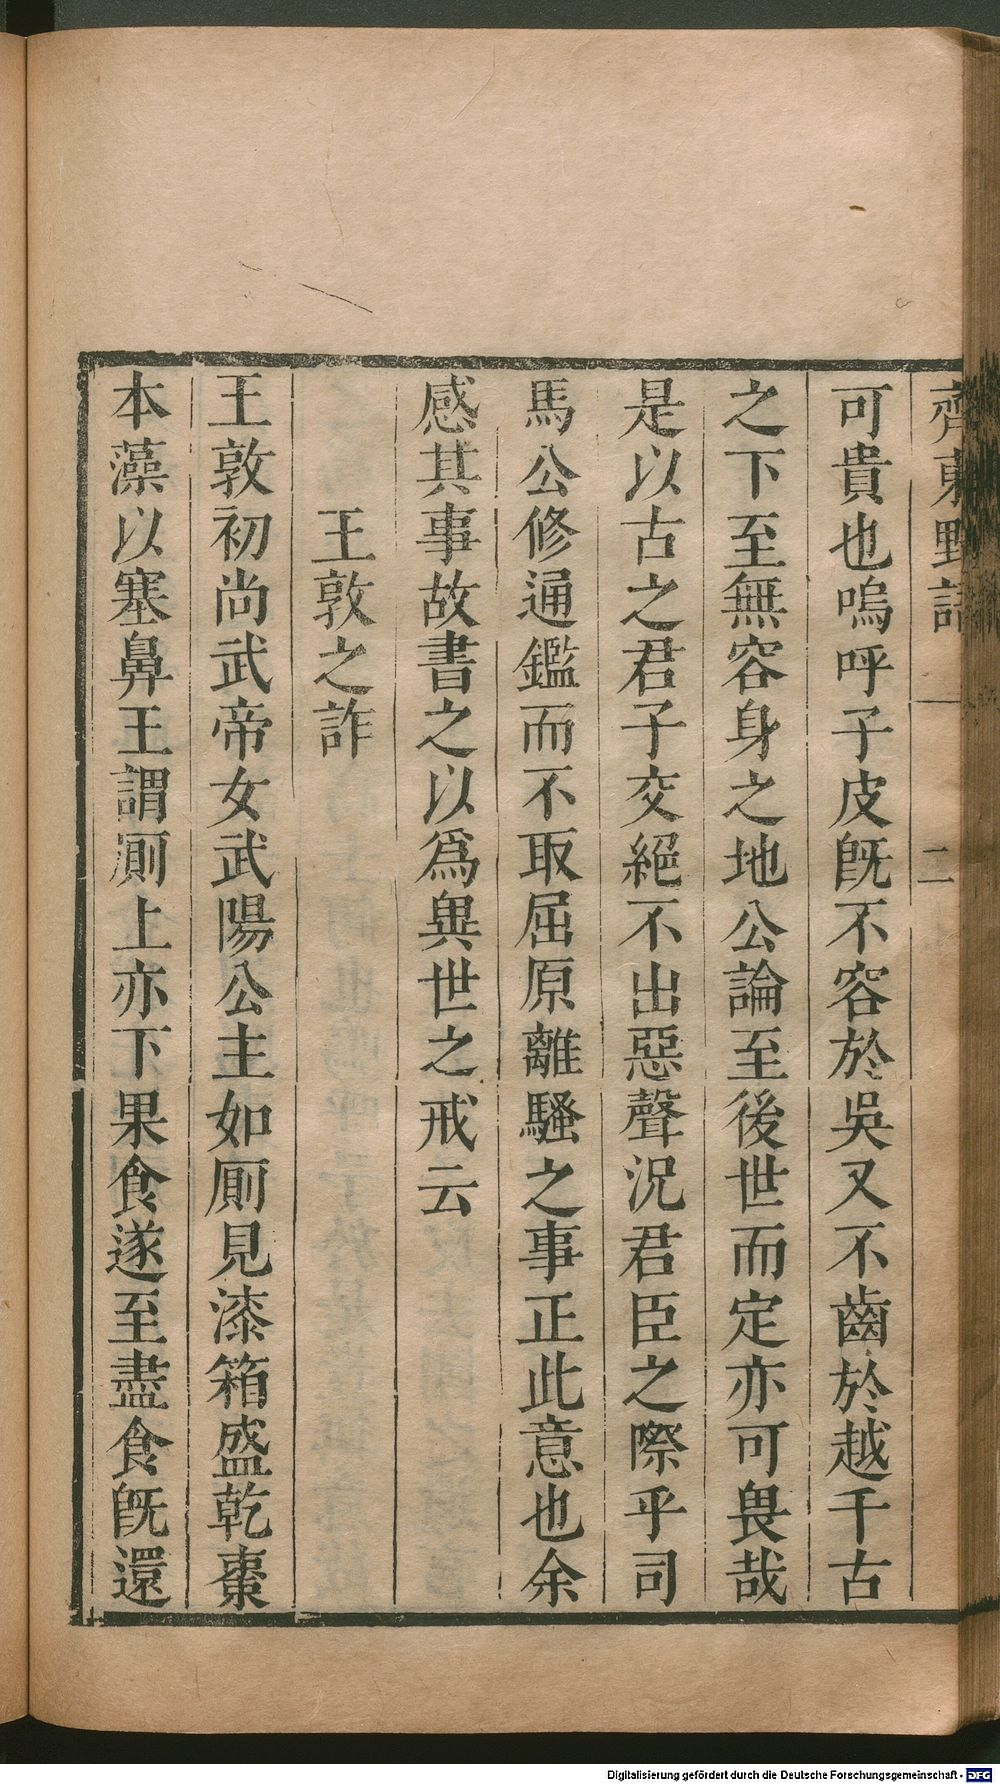 齊東野語 二
可貴也嗚呼子皮旣不容於吳又不齒於越千古
之下至無容身之地公論至後世而定亦可畏哉
是以古之君子交絕不出惡聲況君臣之際乎司
馬公修通鑑而不取屈原離騷之事正此意也余
感其事故書之以爲異世之戒云
王敦之詐
王敦初尚武帝女武陽公主如厠見漆箱盛乾棗
本藻以塞鼻王謂厠上亦下果食遂至盡食旣還
Digitalisierung gefördert durch die Deutsche Forschungsgemeinschaft - DFG